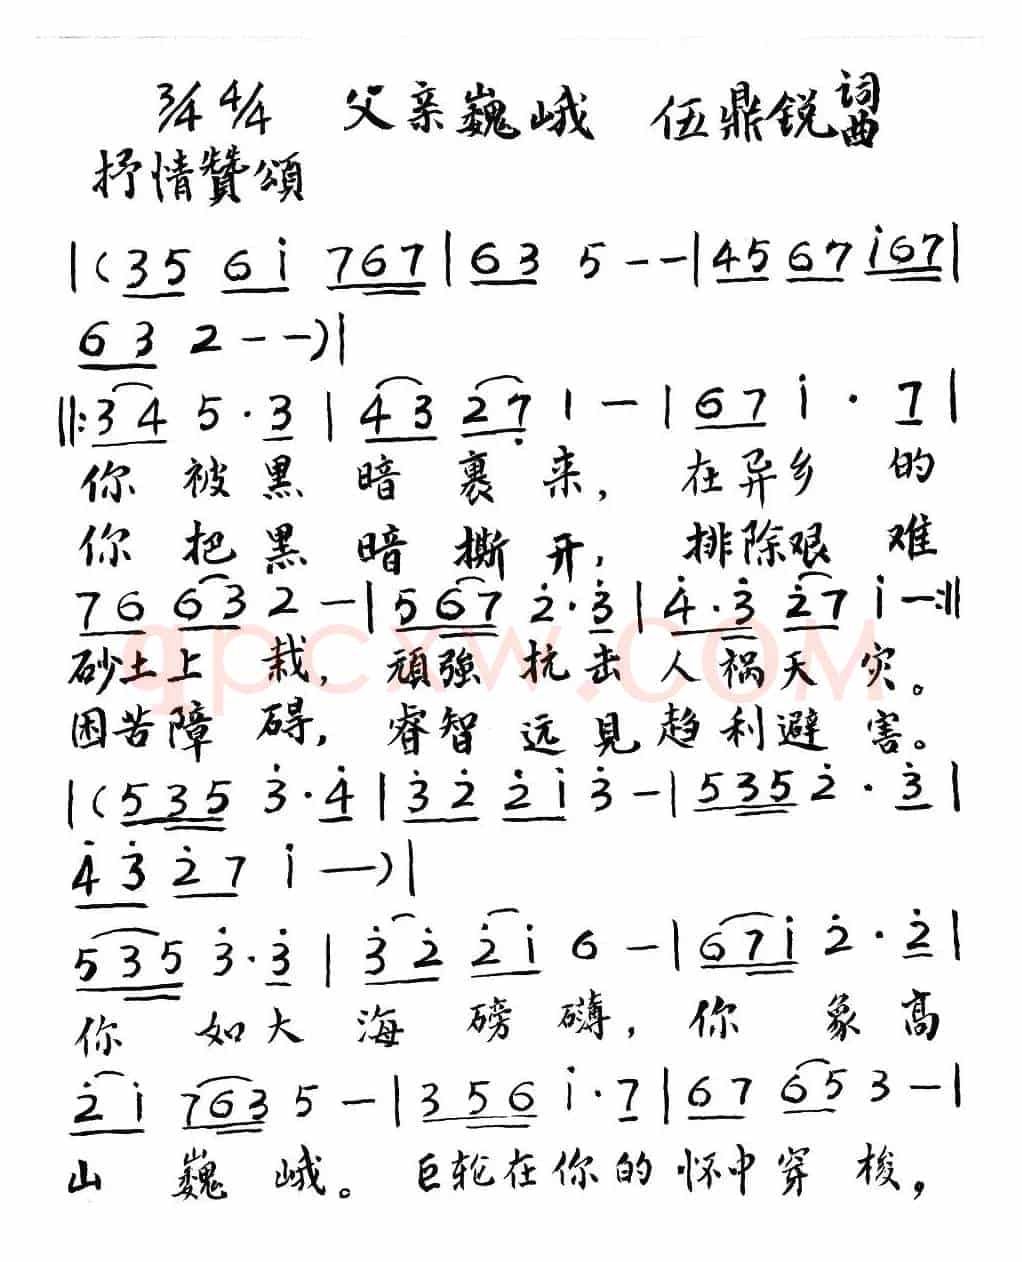 3/4 4/4 父亲巍峨 伍鼎锐 词曲
抒情赞頌
|(35 6i 767|63 5--|45 67 i67|
63 2--)|
||:34 5·3|43 27 1-|67 i·7|
你被黑暗裹来，在异乡的
你把黑暗撕开，排除艰难
76 63 2-|567 2·3|4·3 27 i-:||
砂土上栽，頑強抗击人祸天灾。
困苦障碍，睿智远見趋利避害。
|(535 3·4|32 2i 3-|535 2·3|
43 27 i-)|
535 3·3|32 2i 6-|67i 2·2|
你如大海磅礴，你象高
2i 763 5-|356 i·7|67 65 3-|
山巍峨。巨轮在你的怀中穿梭，
qpcxw.COM